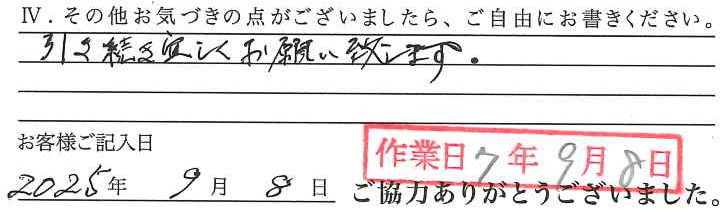 Ⅳ．その他お気づきの点がございましたら、ご自由にお書きください。
引き続き宜しくお願い致します。
お客様ご記入日
作業日 7年 9月 8日
2025年 9月 8日
ご協力ありがとうございました。